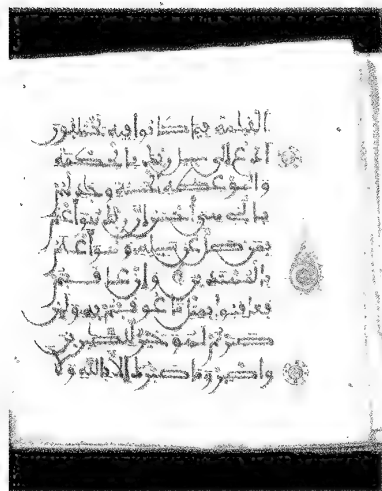 القيمة فيما كانوا فيه يختلفون
ادع الى سبيل ربك بالحكمة
والموعظة الحسنة وجدلهم
بالتي هي أحسن إن ربك هو أعلم
بمن ضل عن سبيله وهو أعلم
بالمهتدين وإن عاقبتم
فعاقبوا بمثل ما عوقبتم به ولئن
صبرتم لهو خير للصبرين
واصبر وما صبرك إلا بالله ولا